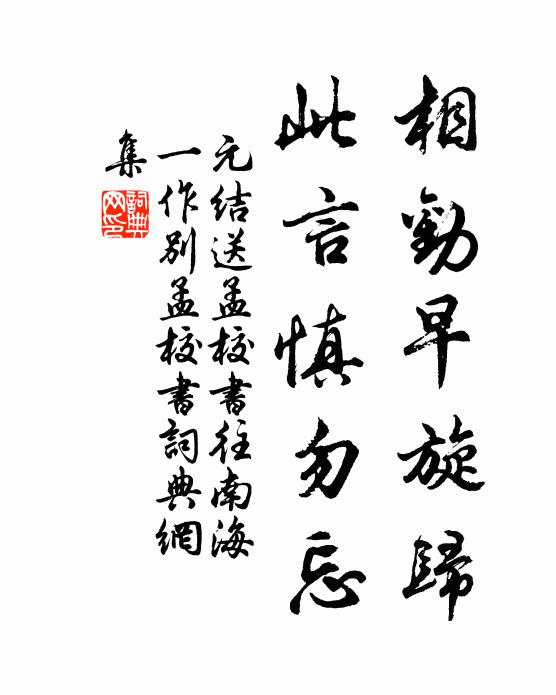 相勸早旋歸
此言慎勿忘
元结送孟校書往南海
一作别孟校書詞典網
集
詞典
网印